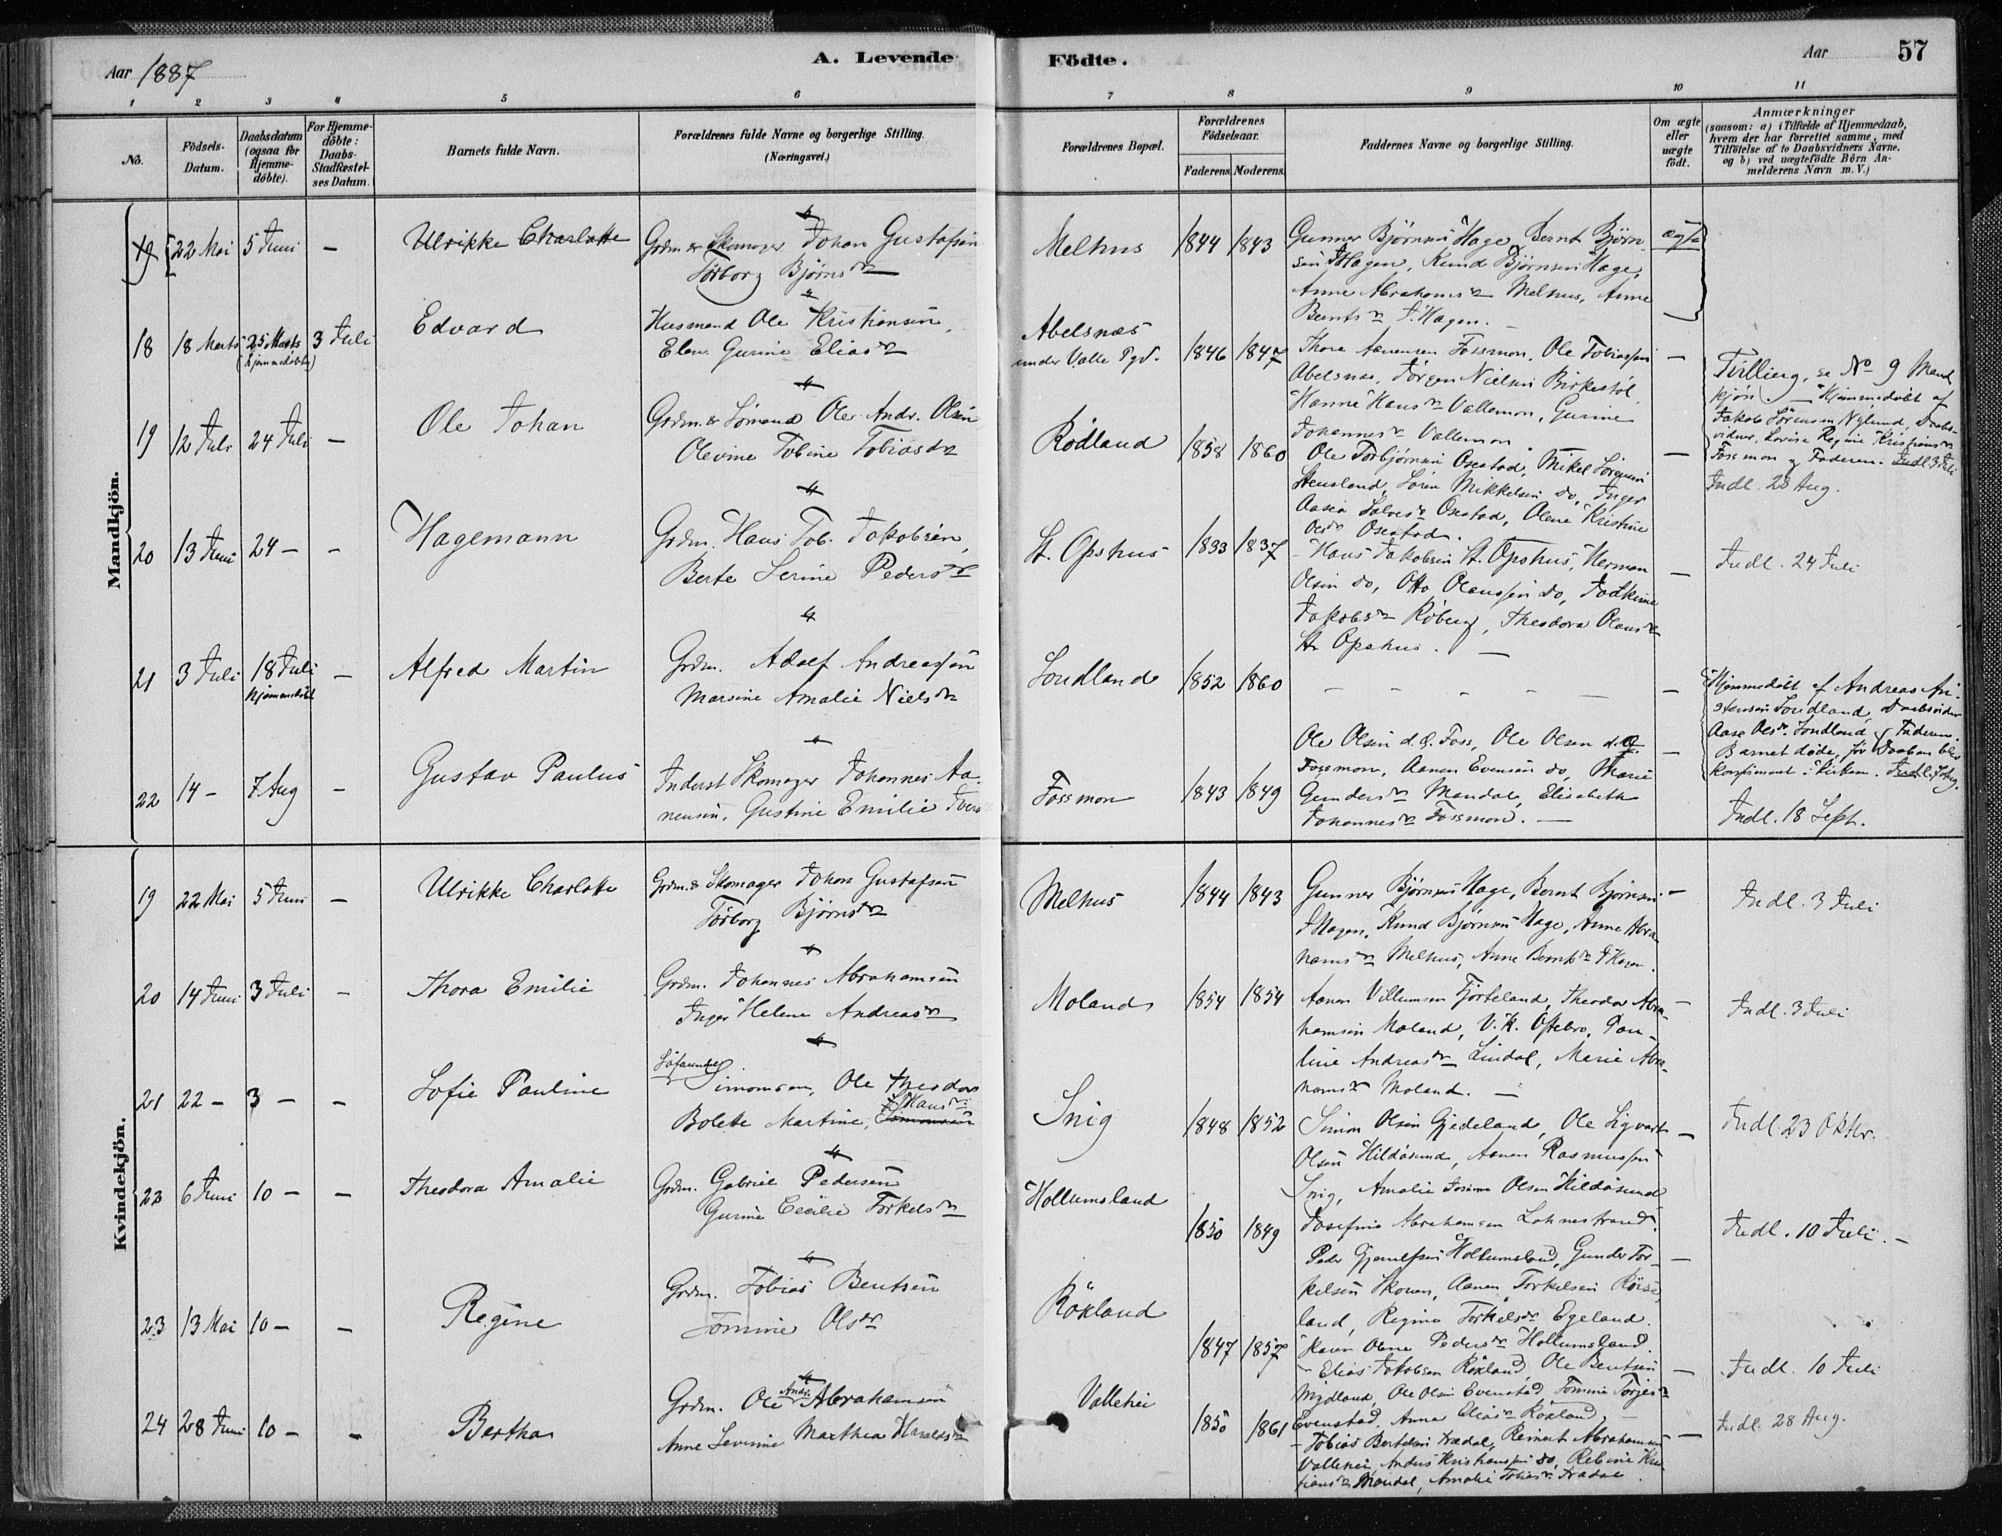 Aar 1887
A. Levende Födte.
Aar 57
1 2 3 4 5 6 7 8 9 10 11
No.
Födsels-Datum.
Daabsdatum (ogsaa for Hjemme-döbte).
For Hjemme-döbte: Daabs-Stadfæstel-ses Datum.
Barnets fulde Navn.
Forældrenes fulde Navne og borgerlige Stilling. (Næringsvei.)
Forældrenes Bopæl.
Forældrenes Födselsaar.
Faderens Moderens
Faddernes Navne og borgerlige Stilling.
Om ægte eller uægte födt.
Anmærkninger
(saasom: a) i Tilfælde af Hjemmedaab,
hvem der har forrettet samme, med
Tilföielse af to Daabsvidners Navne,
og b) ved uægtefödte Börn An-
melderens Navn m. V.)
Mandkjön.
19 22 Mai 5 Juni - Ulrikke Charlotte
Grdm. & Skomager Johan Gustafsen
Torborg Bjørnsdr
Melhus 1844 1843
Gunner Bjørnsen Hage, Bernt Bjørn-
sen Hagen, Knud Bjørnsen Hage,
Anne Abrahamsdr Melhus, Anne
Berntsdr Hagen. -
ægte
18 18 Marts 25 Marts (hjemmedøbt) 3 Juli Edvard
Husmand Ole Kristiansen,
Elen Gurine Eliasdr
Abelsnæs
under Valle Pgd. 1846 1847
Thore Aanensen Fossmon, Ole Tobiassen
Abelsnæs, Jørgen Nielsen Birkestøl
Hanne Hansdr Vallemon, Gurine
Johannesdr Vallemon
Tvilling, se No 9 Mand
kjøn. - Hjemmedøbt af
Jakob Sörensen Nylund, Daabs-
vidner, Lovise Regine Kristiansdr
Fossmon og Faderen. Indl. 3 Juli
19 12 Juli 24 Juli - Ole Johan
Grdm. & Sömand Ole Andr. Olsen
Olevine Tobine Tobiasdr
Rödland 1858 1860
Ole Torbjørnsen Osestad, Mikel Sörensen
Stensland, Sören Mikkelsen do, Inger
Aasea Salvesdr Osestad, Olene Kristine
Olsdr Osestad.
Indl. 28 Aug.
20 13 Juni 24 - - Hagemann
Grdm. Hans Tob. Jakobsen,
Berte Serine Pedersdr
St. Opshus 1833 1837
Hans Jakobsen St. Opshus, Herman
Olsen do, Otto Olaussen do,
Jakobsdr Röberg, Theodora Olausdr
St Opshus. -
Indl. 24 Juli
21 3 Juli 18 Juli hjemmedøbt - Alfred Martin
Grdm. Adolf Andreassen
Marsine Amalie Nielsdr
Londland 1852 1860
- - - - - -
Hjemmedøbt af Andreas Ari-
stensen Londland, Daabsvidner
Aase Olsdr. Londland & Faderen.
Barnet døde, før Daaben blev
konfirmeret i Kirken.
22 14 - 7 Aug - Gustav Paulus
Inderst Skomager Johannes Aa-
nensen, Gustine Emilie Ivers
Fossmon 1843 1849
Ole Olsen d.Æ. Foss, Ole Olsen d.Y.
Fossmon, Aanen Evensen do, Marie
Gundersdr Mandal, Elisabeth
Johannesdr Fossmon. -
Indl. 18 Sept.
Kvindekjön.
19 22 Mai 5 Juni - Ulrikke Charlotte
Grdm. & Skomager Johan Gustafsen
Torborg Bjørnsdr
Melhus 1844 1843
Gunner Bjørnsen Hage, Bernt Bjørnsen
Hagen, Knud Bjørnsen Hage, Anne Abra-
hamsdr Melhus, Anne Berntsdr Hagen.
Indl. 3 Juli
20 14 Juni 3 Juli - Thora Emilie
Grdm. Johannes Abrahamsen
Inger Helene Andreasdr
Moland 1854 1854
Aanen Villumsen Fjorteland, Theodor Abra-
hamsen Moland, V. K. Öftebro, Pau-
line Andreasdr Lindal, Marie Abra-
hamsdr Moland. -
Indl. 3 Juli
21 22 - 3 - - Sofie Pauline
Simonsen, Ole Theodor
Bolette Martine, Hansdr Simonsen
Snig 1848 1852
Simon Olsen Gjedeland, Ole Sigvart
Olsen Hildösund, Aanen Rasmussen
Snig, Amalie Josine Olsen Hildösund
Josefine Abrahamsen Lohnestrand.
Indl. 23 Oktbr.
22 6 Juni 10 - - Theodora Amalie
Grdm. Gabriel Pedersen
Gurine Cecilie Torkelsdr
Hollumsland 1850 1849
Peder Hollumsland, Gunder Tor-
kelsen Skouen, Aanen Torkelsen Röise-
land, Regine Torkelsdr Egeland.
Karen Olene Pedersdr Hollumsland.
Indl. 10 Juli. -
23 13 Mai 10 - - Regine
Grdm. Tobias Bentsen
Tomine Olsdr
Rökland 1847 1857
Elias Jakobsen Rökland, Ole Bentsen
Mydland, Ole Olsen Evenstad, Tomine Torjesdr
Evenstad, Anna Eliasdr Rökland
Indl. 10 Juli
24 28 Juni 10 - - Bertha
Grdm. Ole Andr. Abrahamsen
Anne Severine Marthea Haraldsdr
Vallehei 1850 1861
Tobias Bertelsen Trædal, Reinert Abrahamsen
Vallehei, Anders Kristiansen do, Rebine Kris-
tiansdr Mandal, Amalie Tobiasdr Trædal.
Indl. 28 Aug.